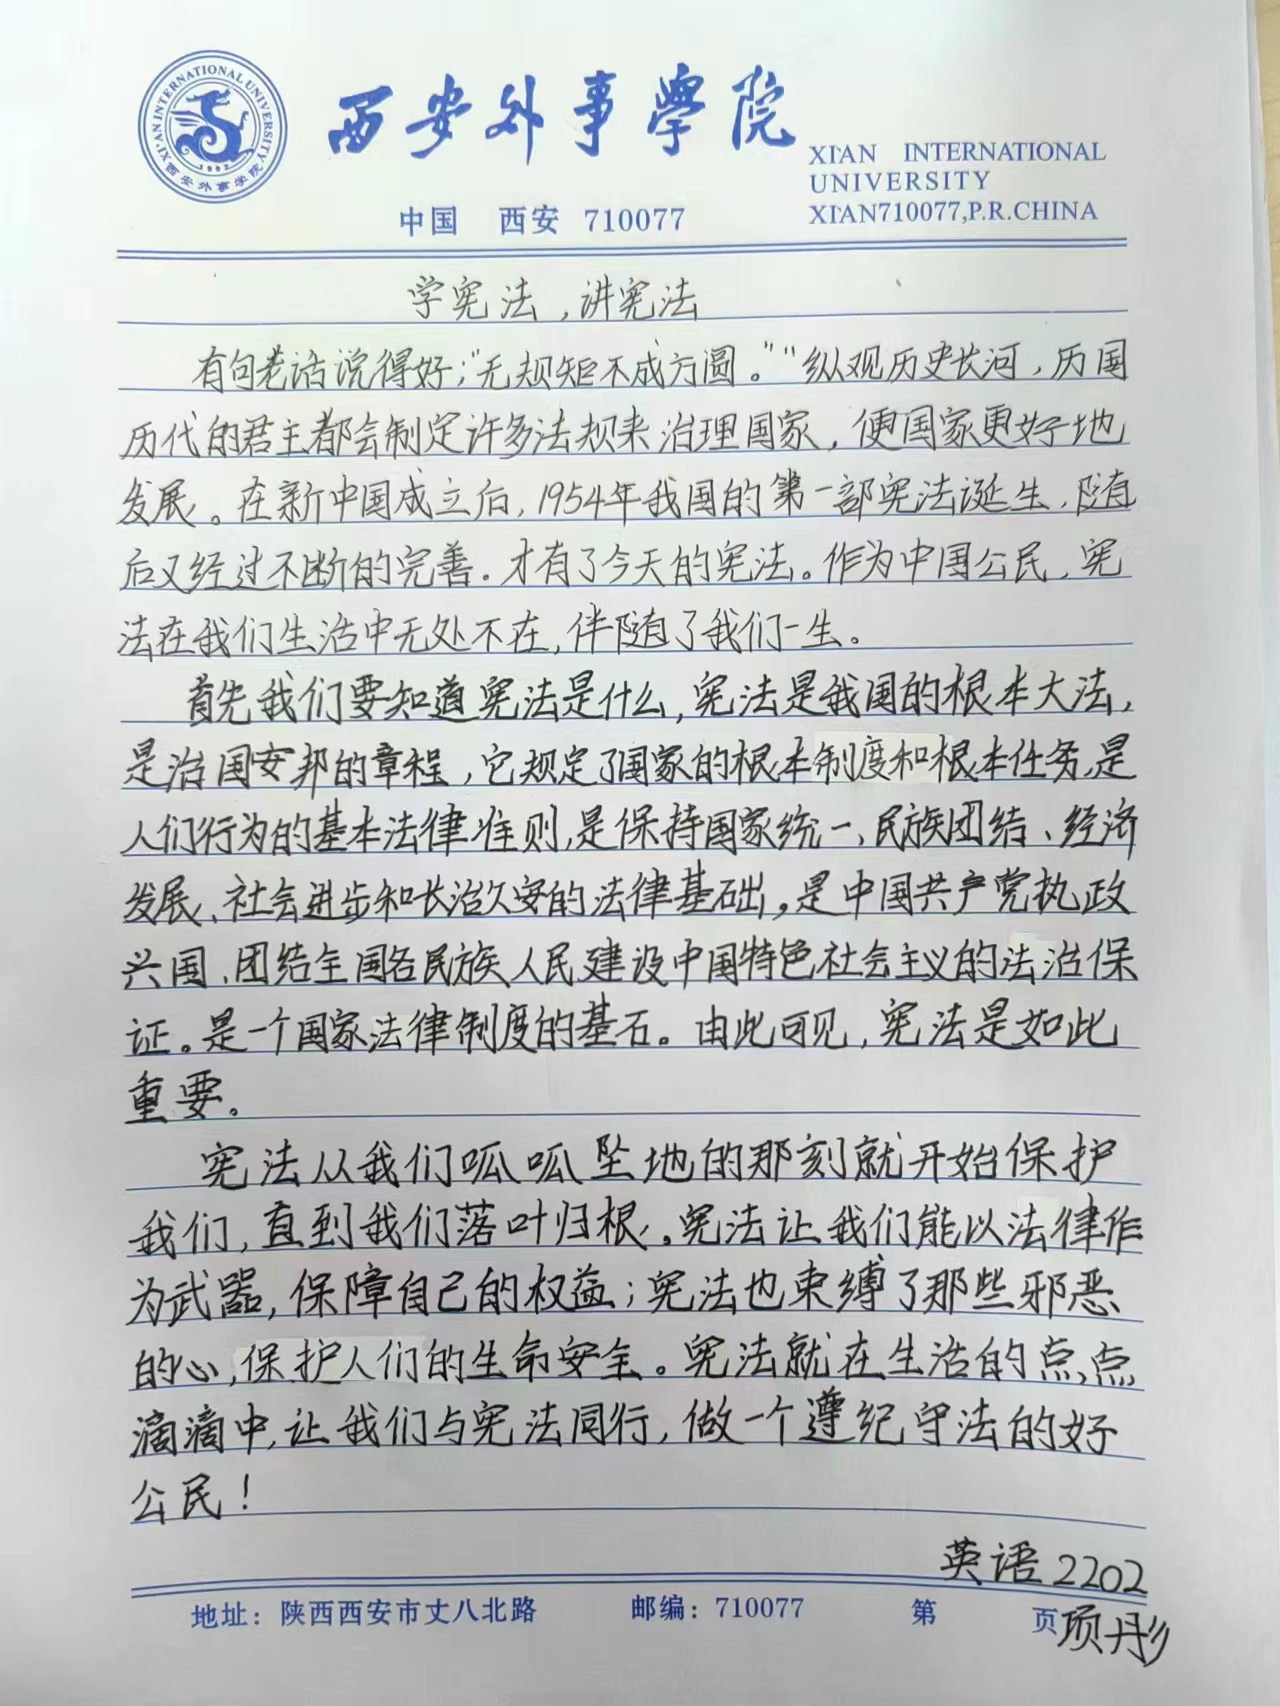 XI'AN INTERNATIONAL UNIVERSITY
1992
西安外事学院
西安外事學院
XI'AN INTERNATIONAL
UNIVERSITY
XI'AN710077,P.R.CHINA
中国 西安 710077
学宪法，讲宪法
有句老话说得好；“无规矩不成方圆。”“纵观历史长河，历国
历代的君主都会制定许多法规来治理国家，便国家更好地
发展。在新中国成立后，1954年我国的第一部宪法诞生，随
后又经过不断的完善。才有了今天的宪法。作为中国公民，宪
法在我们生活中无处不在，伴随了我们一生。
首先我们要知道宪法是什么，宪法是我国的根本大法，
是治国安邦的章程，它规定了国家的根本制度和根本任务，是
人们行为的基本法律准则，是保持国家统一、民族团结、经济
发展、社会进步和长治久安的法律基础，是中国共产党执政
兴国、团结全国各民族人民建设中国特色社会主义的法治保
证。是一个国家法律制度的基石。由此可见，宪法是如此
重要。
宪法从我们呱呱坠地的那刻就开始保护
我们，直到我们落叶归根。宪法让我们能以法律作
为武器，保障自己的权益；宪法也束缚了那些邪恶
的心，保护人们的生命安全。宪法就在生活的点点
滴滴中，让我们与宪法同行，做一个遵纪守法的好
公民！
英语2202
地址：陕西西安市丈八北路 邮编：710077 第 页
项彤